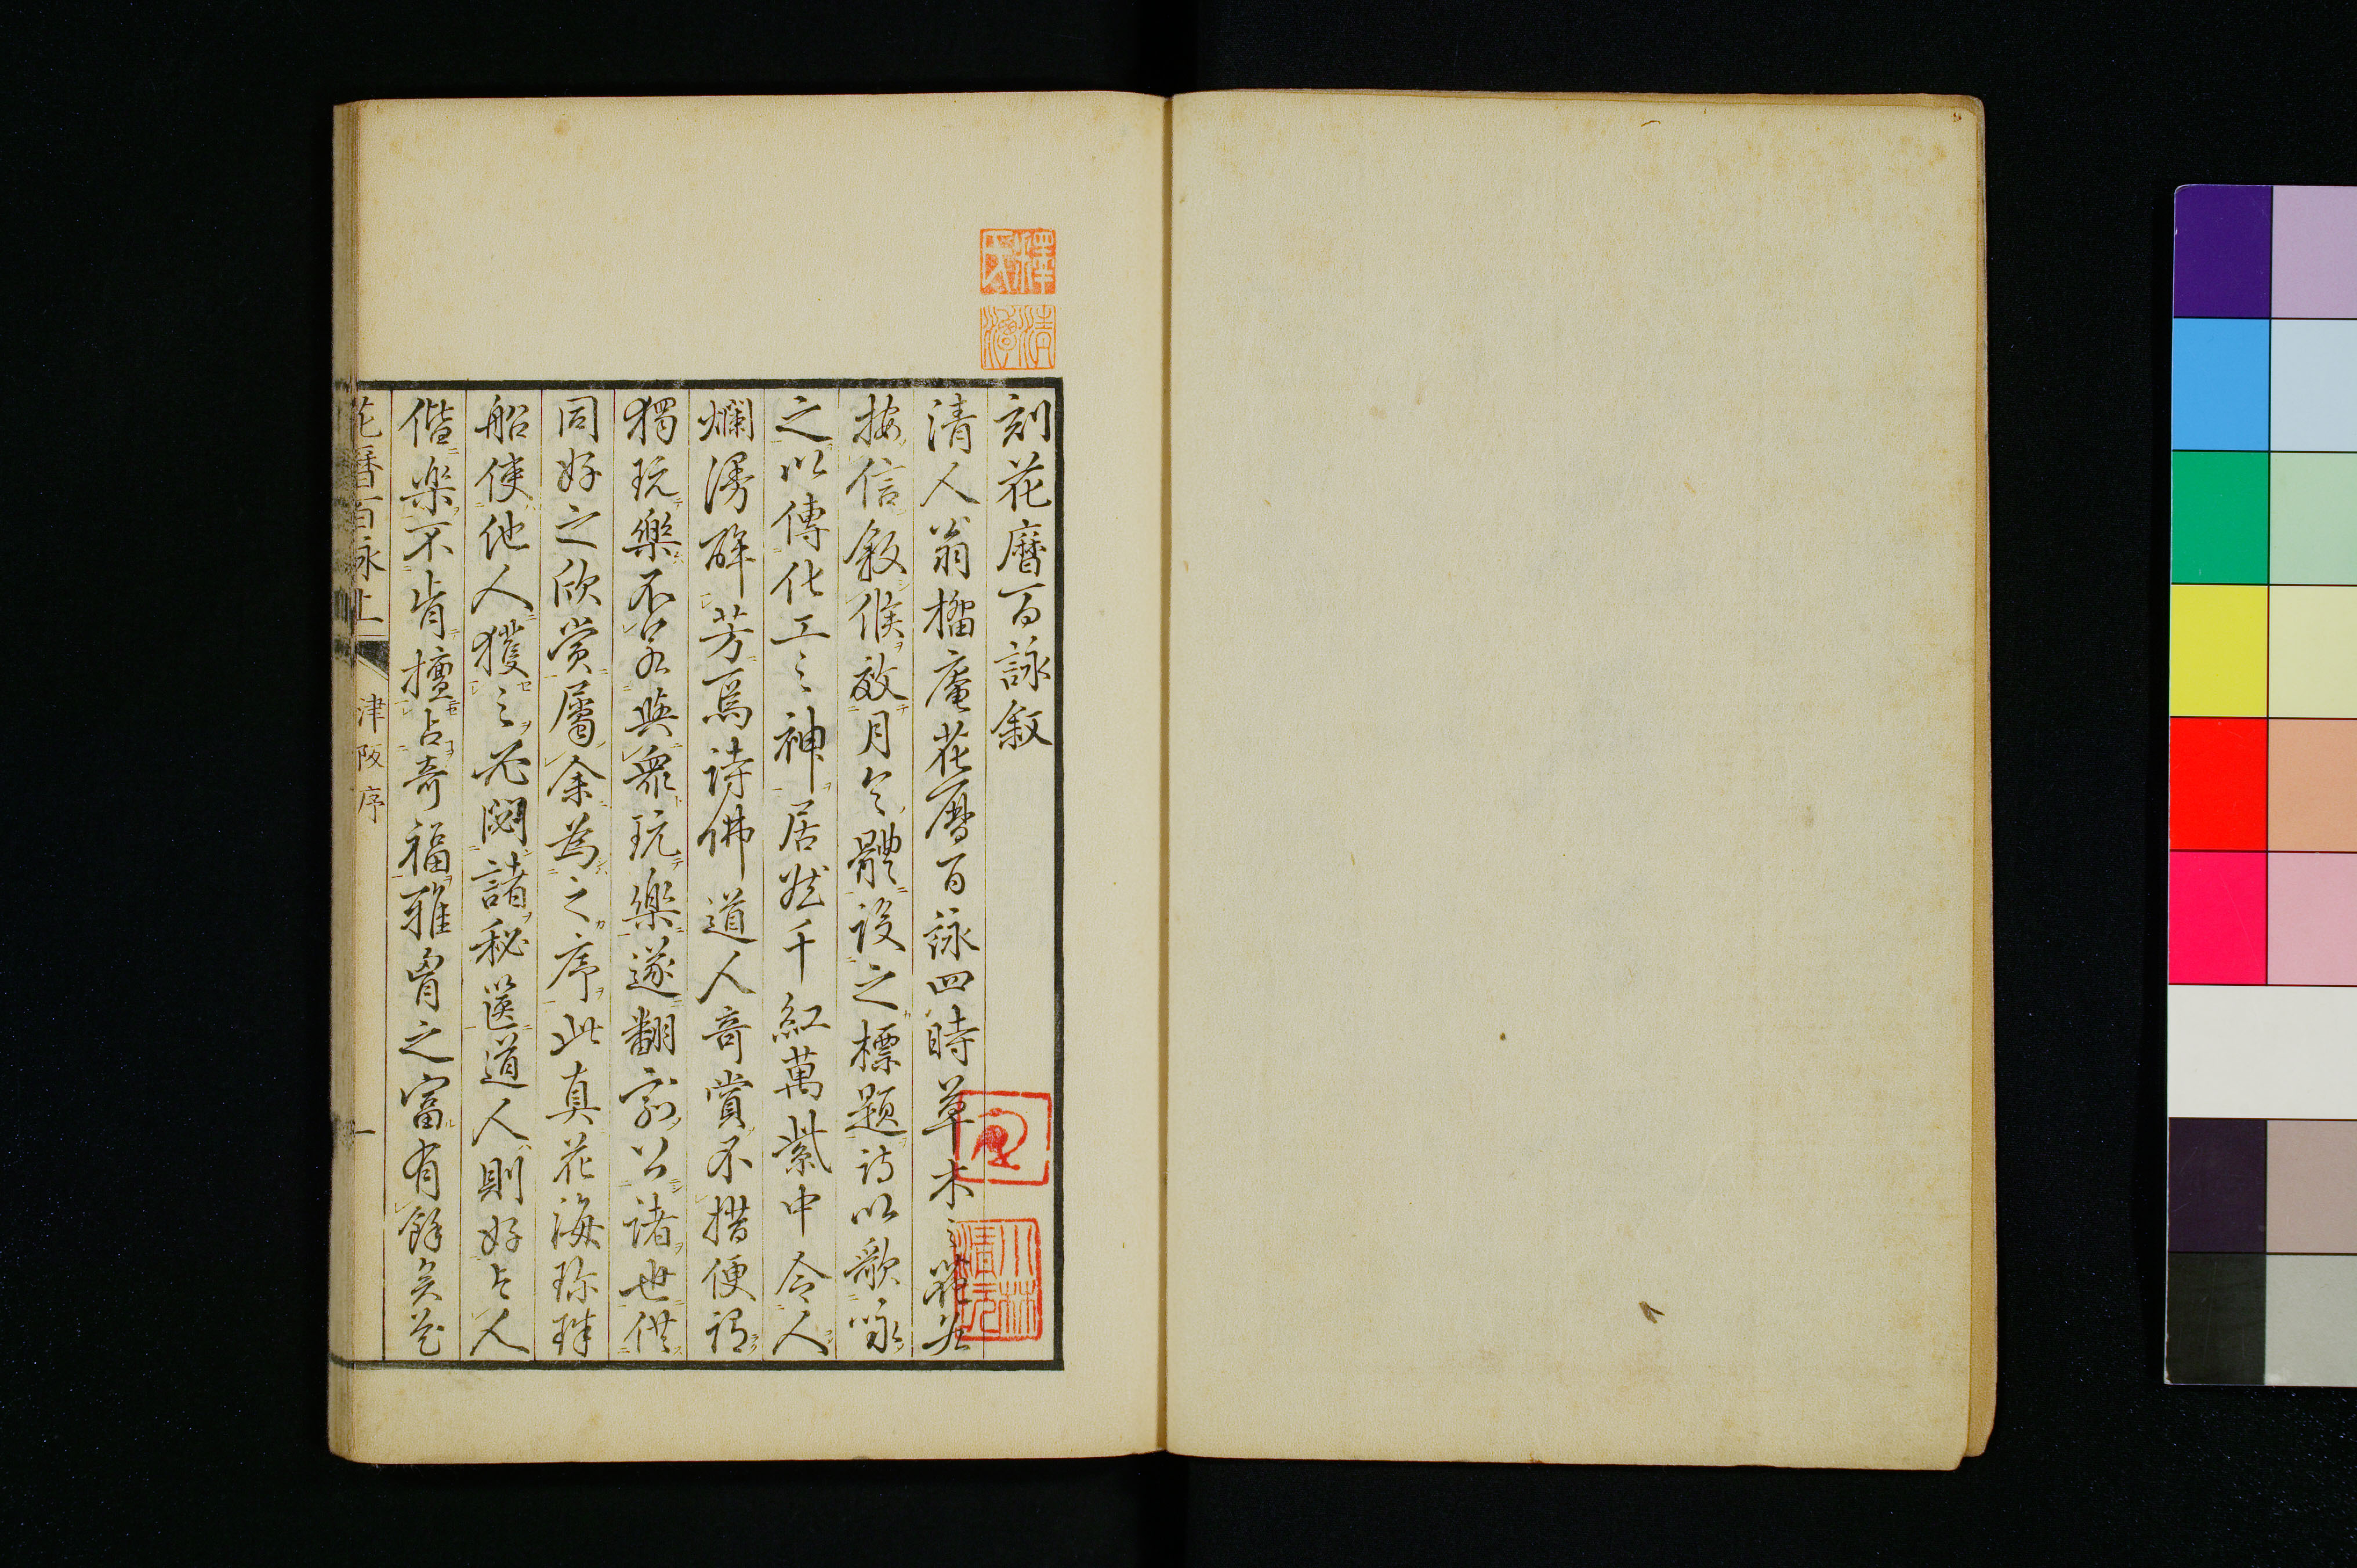 刻花曆百詠叙
清人翁榴庵花曆百詠四時草木之花並
按信叙候效月令體設之標題詩以歌咏
之以傳化工之神居然千紅萬紫中令人
爛漫醉芳焉詩佛道人奇賞不措便謂
獨玩樂不若與衆玩樂遂翻刻公諸世供
同好之欣賞屬余為之序此真花海珍珠
船使他人獲之必閟諸秘篋道人則好與人
偕樂不肯擅占奇福雅胷之富有餘矣花
花曆百詠上
津阪序
一